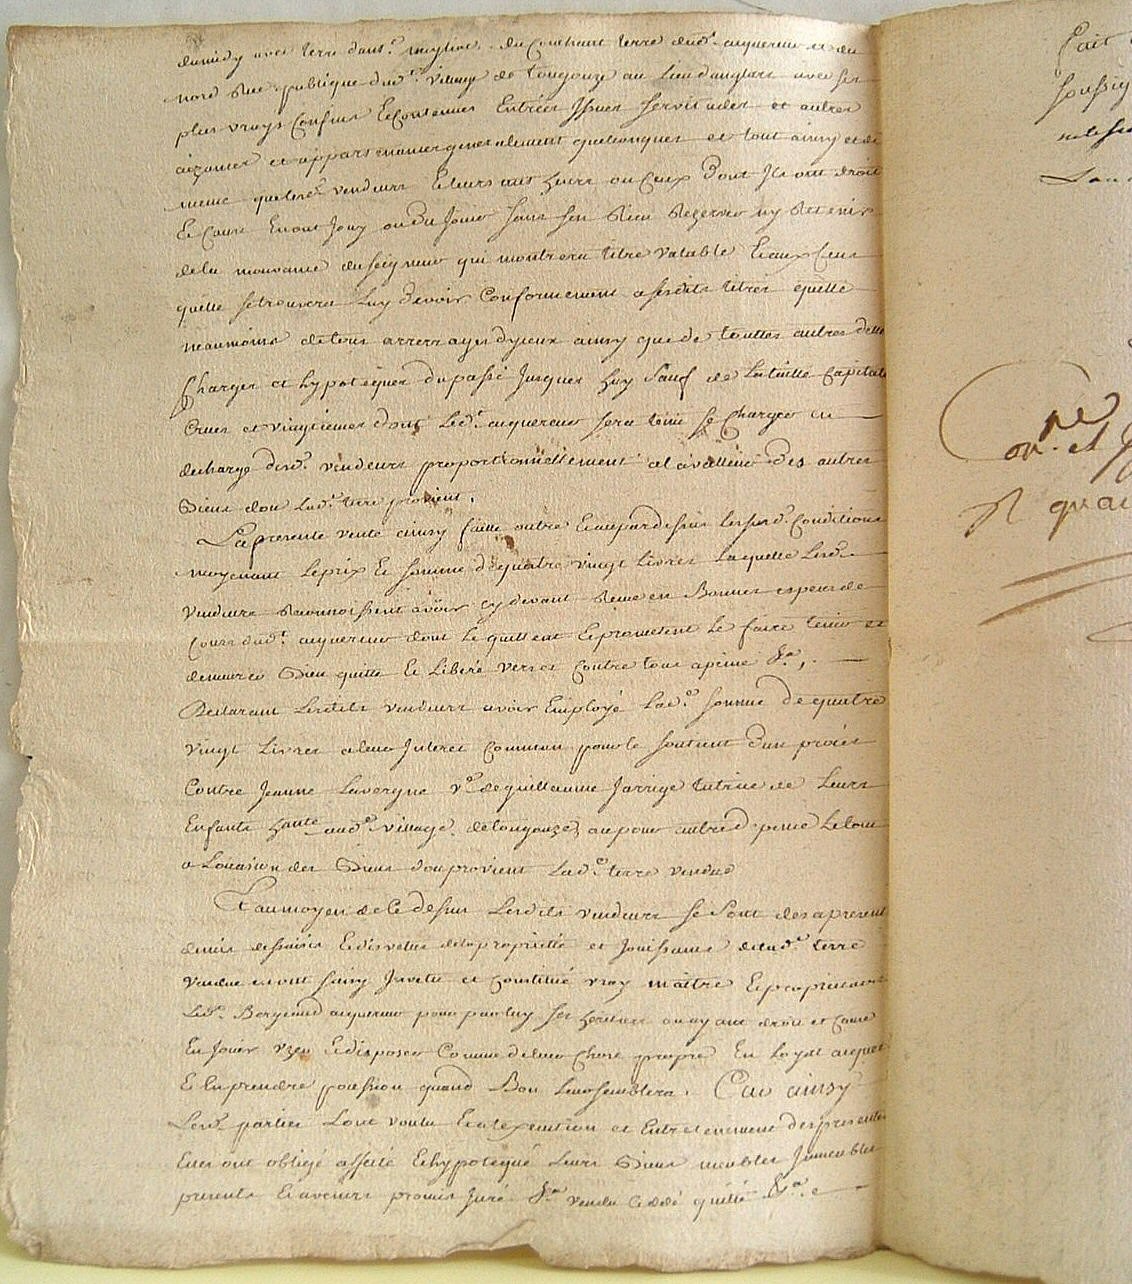 dumidy avec terre dant.^e meyrac, du Couchant terre dud.^t aquereur et du
nord Rue publique dud.^t village de Longouze au Lieu danglars avec ses
plus vrays Confins Econtenuës Entrées Issues servitudes et autres
aizances et appartenances generalement quelconques et tout ainsy et de
meme que les.^ts vendeurs Eleurs autheurs ou Ceux dont Ils ont droit
Et Cause En ont Jouy ou du Jouir sans sen Rien Rezerver ny Retenir
de la mouvance du seigneur qui montrera titre valable Eaux Cens
quelle setrouvera Luy devoir Conformement asesdits titres quitte
neanmoins de tous arrerrages dyceux ainsy que de touttes autres dettes
Charges et hypoteques du passé Jusques huy Sauf de Lataille Capitale
Crues et vingtiemes dont Led.^t aquereur sera tenu se Charger en
decharge desd.^s vendeurs proportionnellement alavallenir des autres
Biens dou Lad.^e terre provient.
La presente vente ainsy faitte outre Eaupardessus lessusd.^s Conditions
moyenant Leprix Et somme de quatre vingt Livres Laquelle Lesd.^s
vendeurs Reconnoissent avoir cy devant Reçue en Bonnes especes de
Cours dud.^t aquereur dont Le quittent Epromettent Le faire tenir et
demeurer Bien quitte Et Libéré vers et Contre tous apeine &.^a,
Declarant Lesdits vendeurs avoir Employé Lad.^e somme de quatre
vingt Livres aleur Interet Commun pour le soutient dun procès
Contre Jeanne Lavergne v.^e de guillaume Jarrige tutrice de Leurs
Enfants hante aud.^t village de longouze, aupour autre d
a Loccasion des Biens dou provient Lad.^e terre vendue
Et aumoyen de Ce dessus Lesdits vendeurs se sont des apresent
demis dessaisis Edevetus dela proprietté et Jouissance de Lad.^e terre
vendue en ont saisy Investu et Constitué vray maître Eproprietaire
Led.^t Bergeaud aquereur pour parluy ses heritiers ou ayant droit et Cause
En Jouir uzer Edisposer Comme de leur Chose propre En Loyal acquet
Et Enprendre possession quand Bon Leursemblera. Car ainsy
Lesd.^s parties Lont voulu Eal execution et Entretenement des presentes
Elles ont obligé affecté Ehypotequé Leurs Biens meubles Immeubles
presents Et avenirs promis Juré &.^a vendu Cedé quitté &.^a
Fait
soussig
ne
on.^ et
R quar